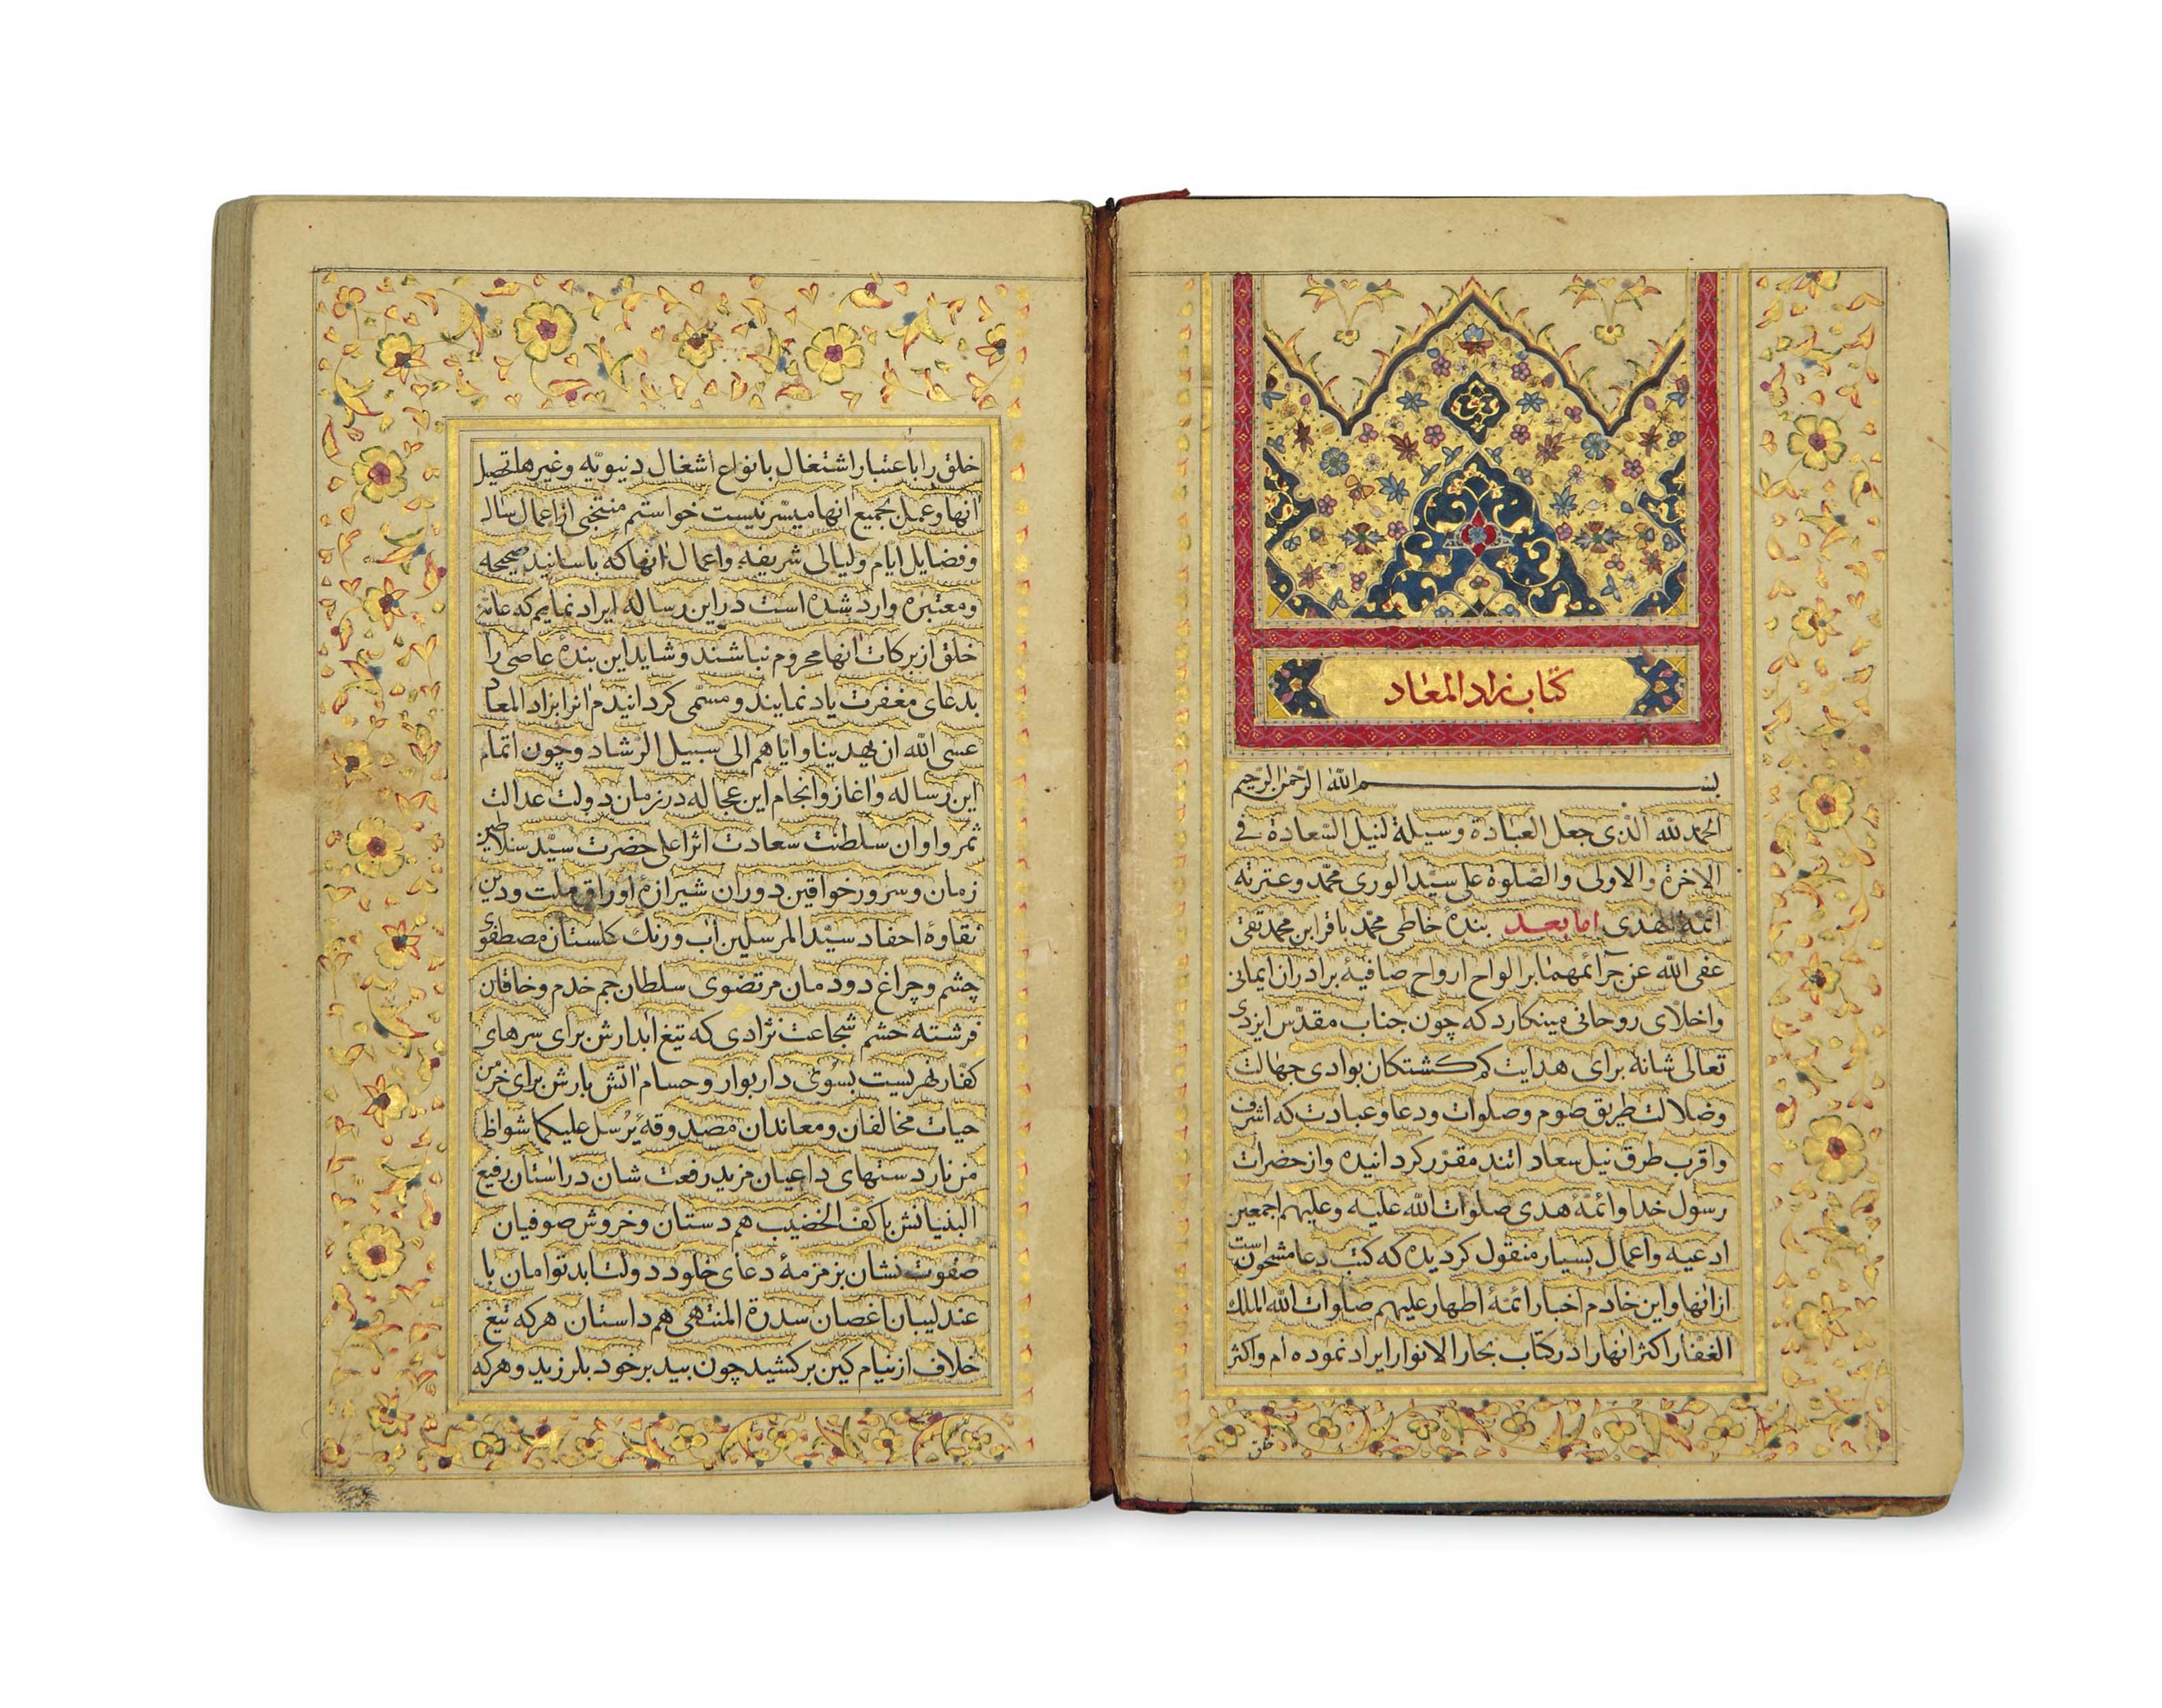 كتاب زاد المعاد
بسم الله الرحمن الرحيم
الحمد لله الذى جعل العبادة وسيلة لنيل السعادة فى
الاخرة والاولى والصلوة على سيد الورى محمد وعترته
ائمة الهدى اما بعد بنده خاطى محمد باقر ابن محمد تقى
عفى الله عن جرائمهما بر الواح ارواح صافيهٔ برادران ايمانى
واخلاى روحانى مينكارد كه چون جناب مقدس ايزدى
تعالى شانه براى هدايت كم كشتكان بوادى جهالت
وضلالت طريق صوم وصلوات ودعا وعبادت كه اشرف
واقرب طرق نيل سعاداتند مقرر كردانيده واز حضرات
رسول خدا وائمهٔ هدى صلوات الله عليه وعليهم اجمعين
ادعيه واعمال بسيار منقول كرديده كه كتب دعا مشحون است
از انها واين خادم اخبار ائمهٔ اطهار عليهم صلوات الله الملك
الغفار اكثر انها را در كتاب بحار الانوار ايراد نموده ام واكثر
خلق
خلق را باعتبار اشتغال بانواع اشغال دنيويه وغيرها تحصيل
انها وعمل بجميع انها ميسر نيست خواستم منتخبى از اعمال سال
وفضايل ايام وليالى شريفه واعمال انها كه باسانيد صحيحه
ومعتبره وارد شده است در اين رساله ايراد نمايم كه عامهٔ
خلق از بركات انها محروم نباشند وشايد اين بندهٔ عاصى را
بدعاى مغفرت ياد نمايند ومسمى كردانيدم انرا بزاد المعاد
عسى الله ان يهدينا واياهم الى سبيل الرشاد وچون اتمام
اين رساله واغاز وانجام اين عجاله در زمان دولت عدالت
ثمر واوان سلطنت سعادت اثر اعلى حضرت سيد سلاطين
زمان وسرور خواقين دوران شيرازهٔ اوراق ملت ودين
نقاوهٔ احفاد سيد المرسلين اب ورنك كلستان مصطفوى
چشم وچراغ دودمان مرتضوى سلطان جم خدم وخاقان
فرشته حشم شجاعت نژادى كه تيغ ابدارش براى سرهاى
كفار نهريست بسوى دار بوار وحسام اتش بارش براى خرمن
حيات مخالفان ومعاندان مصدوقهٔ يرسل عليكما شواظ
من نار دستهاى داعيان مزيد رفعت شان در استان رفيع
البنيانش با كف الخضيب هم دستان وخروش صوفيان
صفوت نشان بزمزمهٔ دعاى خلود دولت ابد توامان با
عندليبان اغصان سدرة المنتهى هم داستان هر كه تيغ
خلاف از نيام كين بر كشيد چون بيد بر خود بلرزيد وهر كه